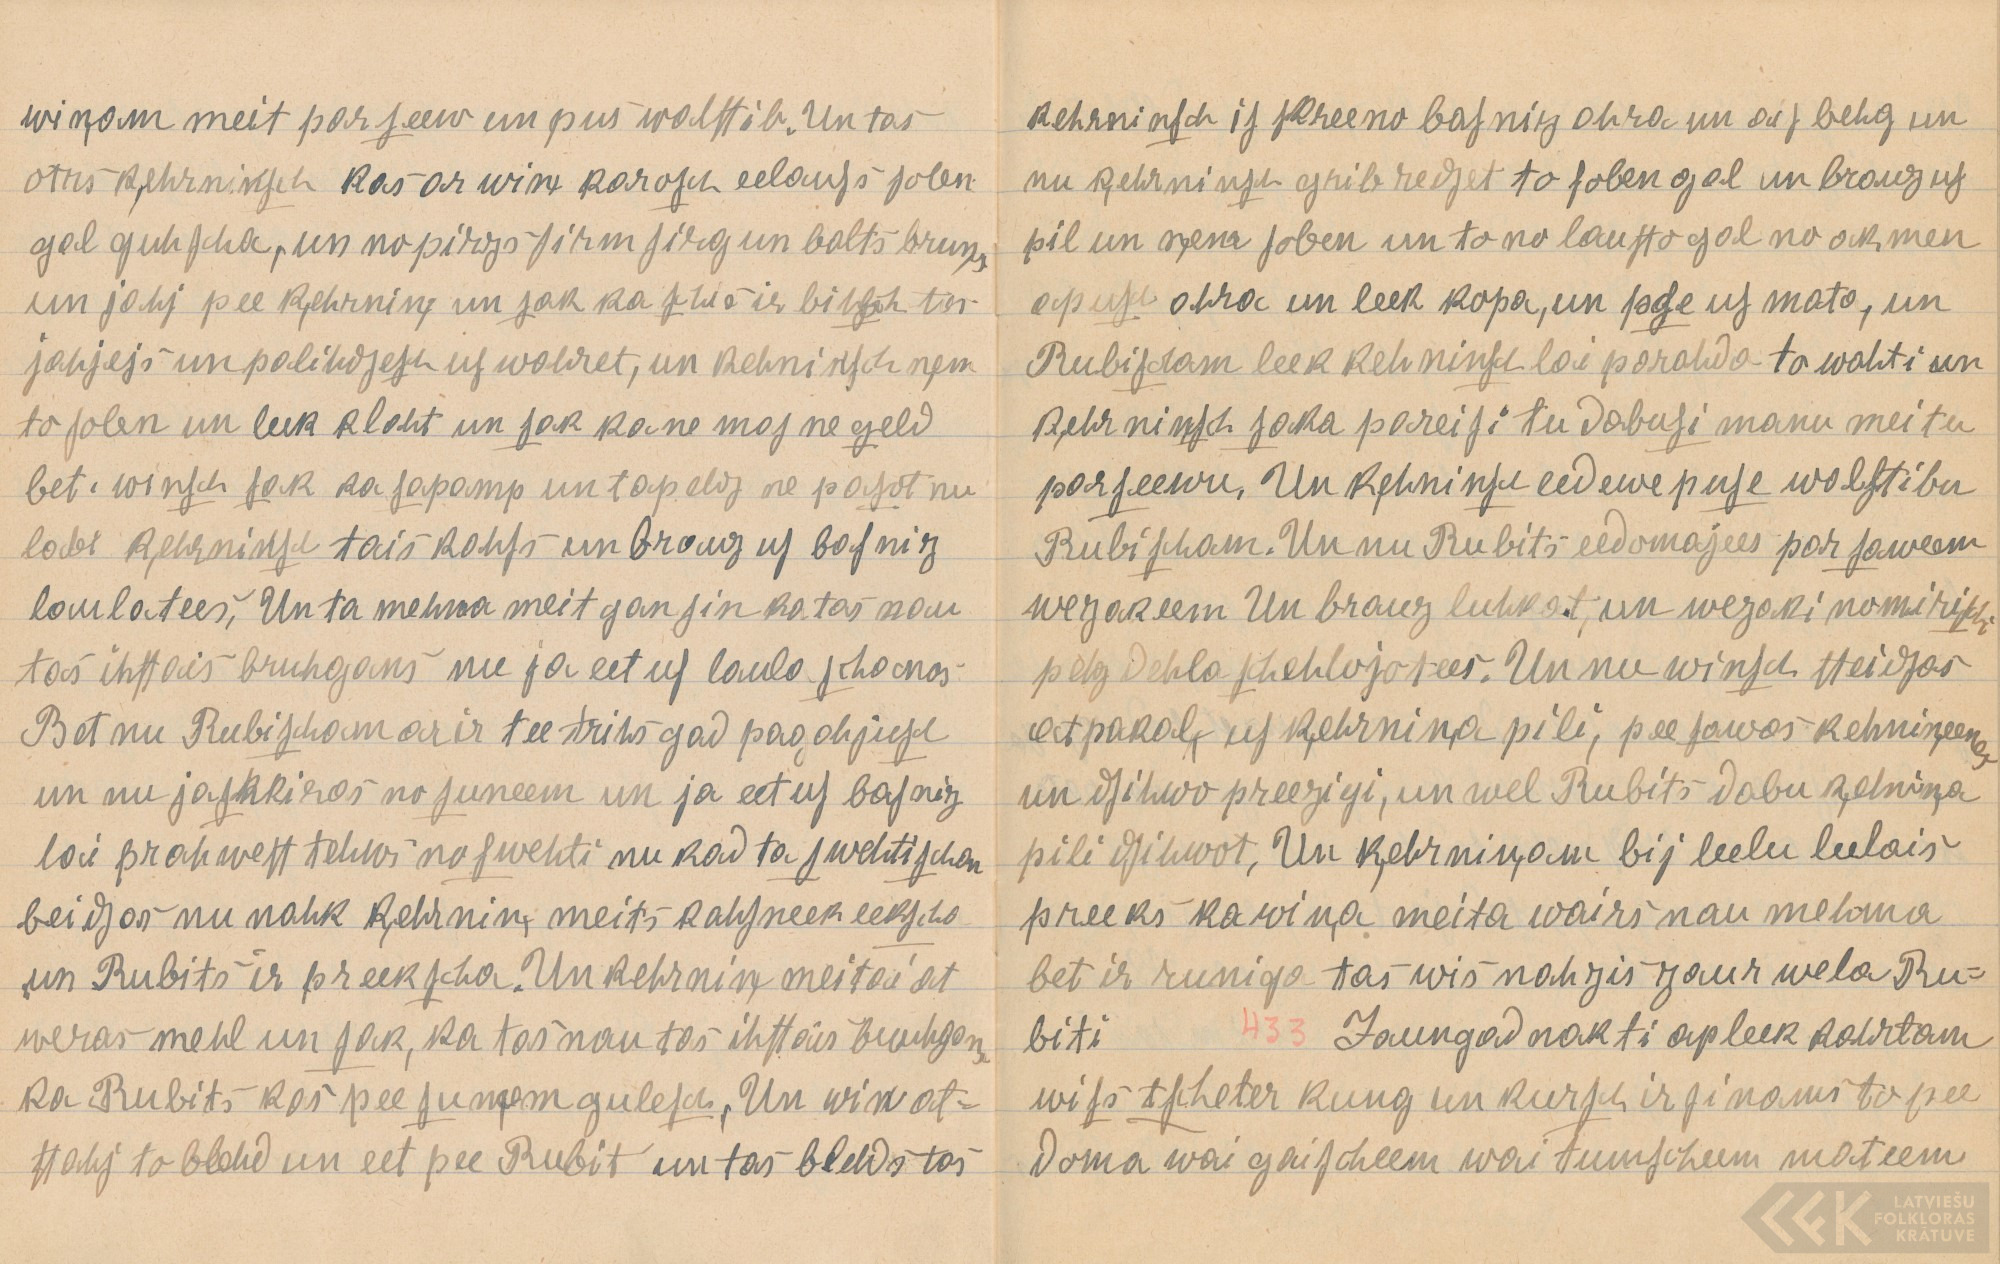 wiņam meit par ſeew un pus walſtib. Un tas
otrs ķehrninſch kas ar wiņ karoſch eelauſs ſoben
gal guhſcha, un nopirzs ſirm ſirg un balts bruņ
un jahj pee ķehrniņ un ſak ka ſchis ir bihſch tas
jahjejs un palihdſeſch uſ wahret, un kehninſch ņem
to ſoben un leek klaht un ſak ka ne maſ ne geld
bet winſch ſak ka ſapamp un tapehz ne paſot nu
labi ķehrninſch tais kahſs un brauz uſ baſniz
laulatees, Un ta mehma meit gan ſin ka tas nau
tas ihſtais bruhgans nu ja eet uſ laula ſchanas
Bet nu Rubiſcham ar ir tee trihs gad pagahjuſch
un nu jaſkkiras no ſuneem un ja eet uſ baſniz
lai prahweſt tehws no ſwehti nu kad ta ſwehtiſchan
beidſas nu nahk ķehrniņ meits kahſneek eekſcha
un Rubits ir preekſcha. Un kehrniņ meitai at
weras mehl un ſak, ka tas nau tas ihſtais bruhgans
ka Rubits kas pee ſuņem guleſch, Un wiņ at=
ſtahj to blehd un eet pee Rubit un tas blehds tas
kehrninſch iſ ſkreeno baſniz ahra un aiſ behg un
nu ķehrninſch grib redſet to ſoben gal un brauz uſ
pil un ņem ſoben un to no lauſto gal no akmen
apuſch ahra un leek kopa, un paſe uſ mata, un
Rubiſcham leek kehninſch lai parahda to wahti un
ķehrninſch ſaka pareiſi tu dabuſi manu meitu
par ſeewu, Un ķehninſch eedewe puſe walſtibu
Rubiſcham. Un nu Rubits eedomajees par ſaweem
wezakeem Un brauz luhkot, un wezaki nomiriſchi
pehz dehla ſchehlojotees. Un nu winſch ſteidſas
atpakaļ uſ ķehrniņa pili, pee ſawas kehniņeenes
un dſihwo preezigi, un wel Rubits dabu ķehniņa
pili dſihwot, Un ķehrniņam bij leelu leelais
preeks ka wiņa meita wairs nau mehma
bet ir runiga tas wis nahzis zaur wela Ru=
biti 433 Jaungad nakti apleek kahrtam
wiſs tſcheter kung un kurſch ir ſinams to pee
doma wai gaiſcheem wai tumſcheem mateem
LATVIEŠU
FOLKLORAS
KRĀTUVE